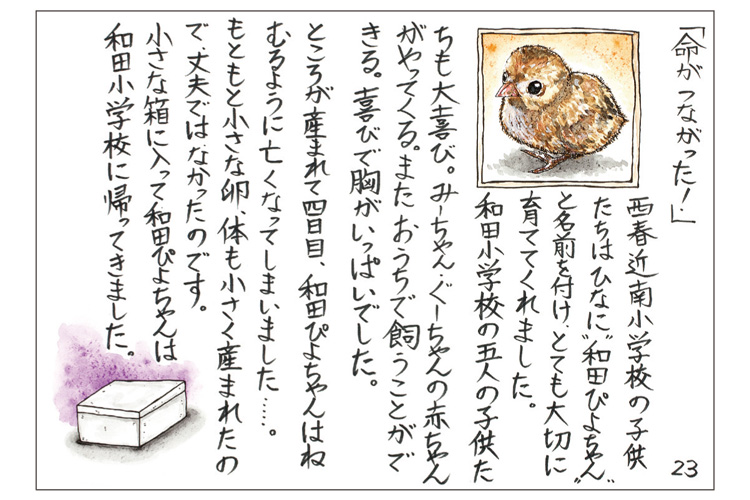 「命がつながった！」
西春近南小学校の子供
たちはひなに"和田ぴよちゃん"
と名前を付け、とても大切に
育ててくれました。
和田小学校の五人の子供た
ちも大喜び。みーちゃん・ぐーちゃんの赤ちゃん
がやってくる。またおうちで飼うことがで
きる。喜びで胸がいっぱいでした。
ところが産まれて四日目、和田ぴよちゃんはね
むるように亡くなってしまいました……。
もともと小さな卵、体も小さく産まれたの
で、丈夫ではなかったのです。
小さな箱に入って和田ぴよちゃんは
和田小学校に帰ってきました。
23